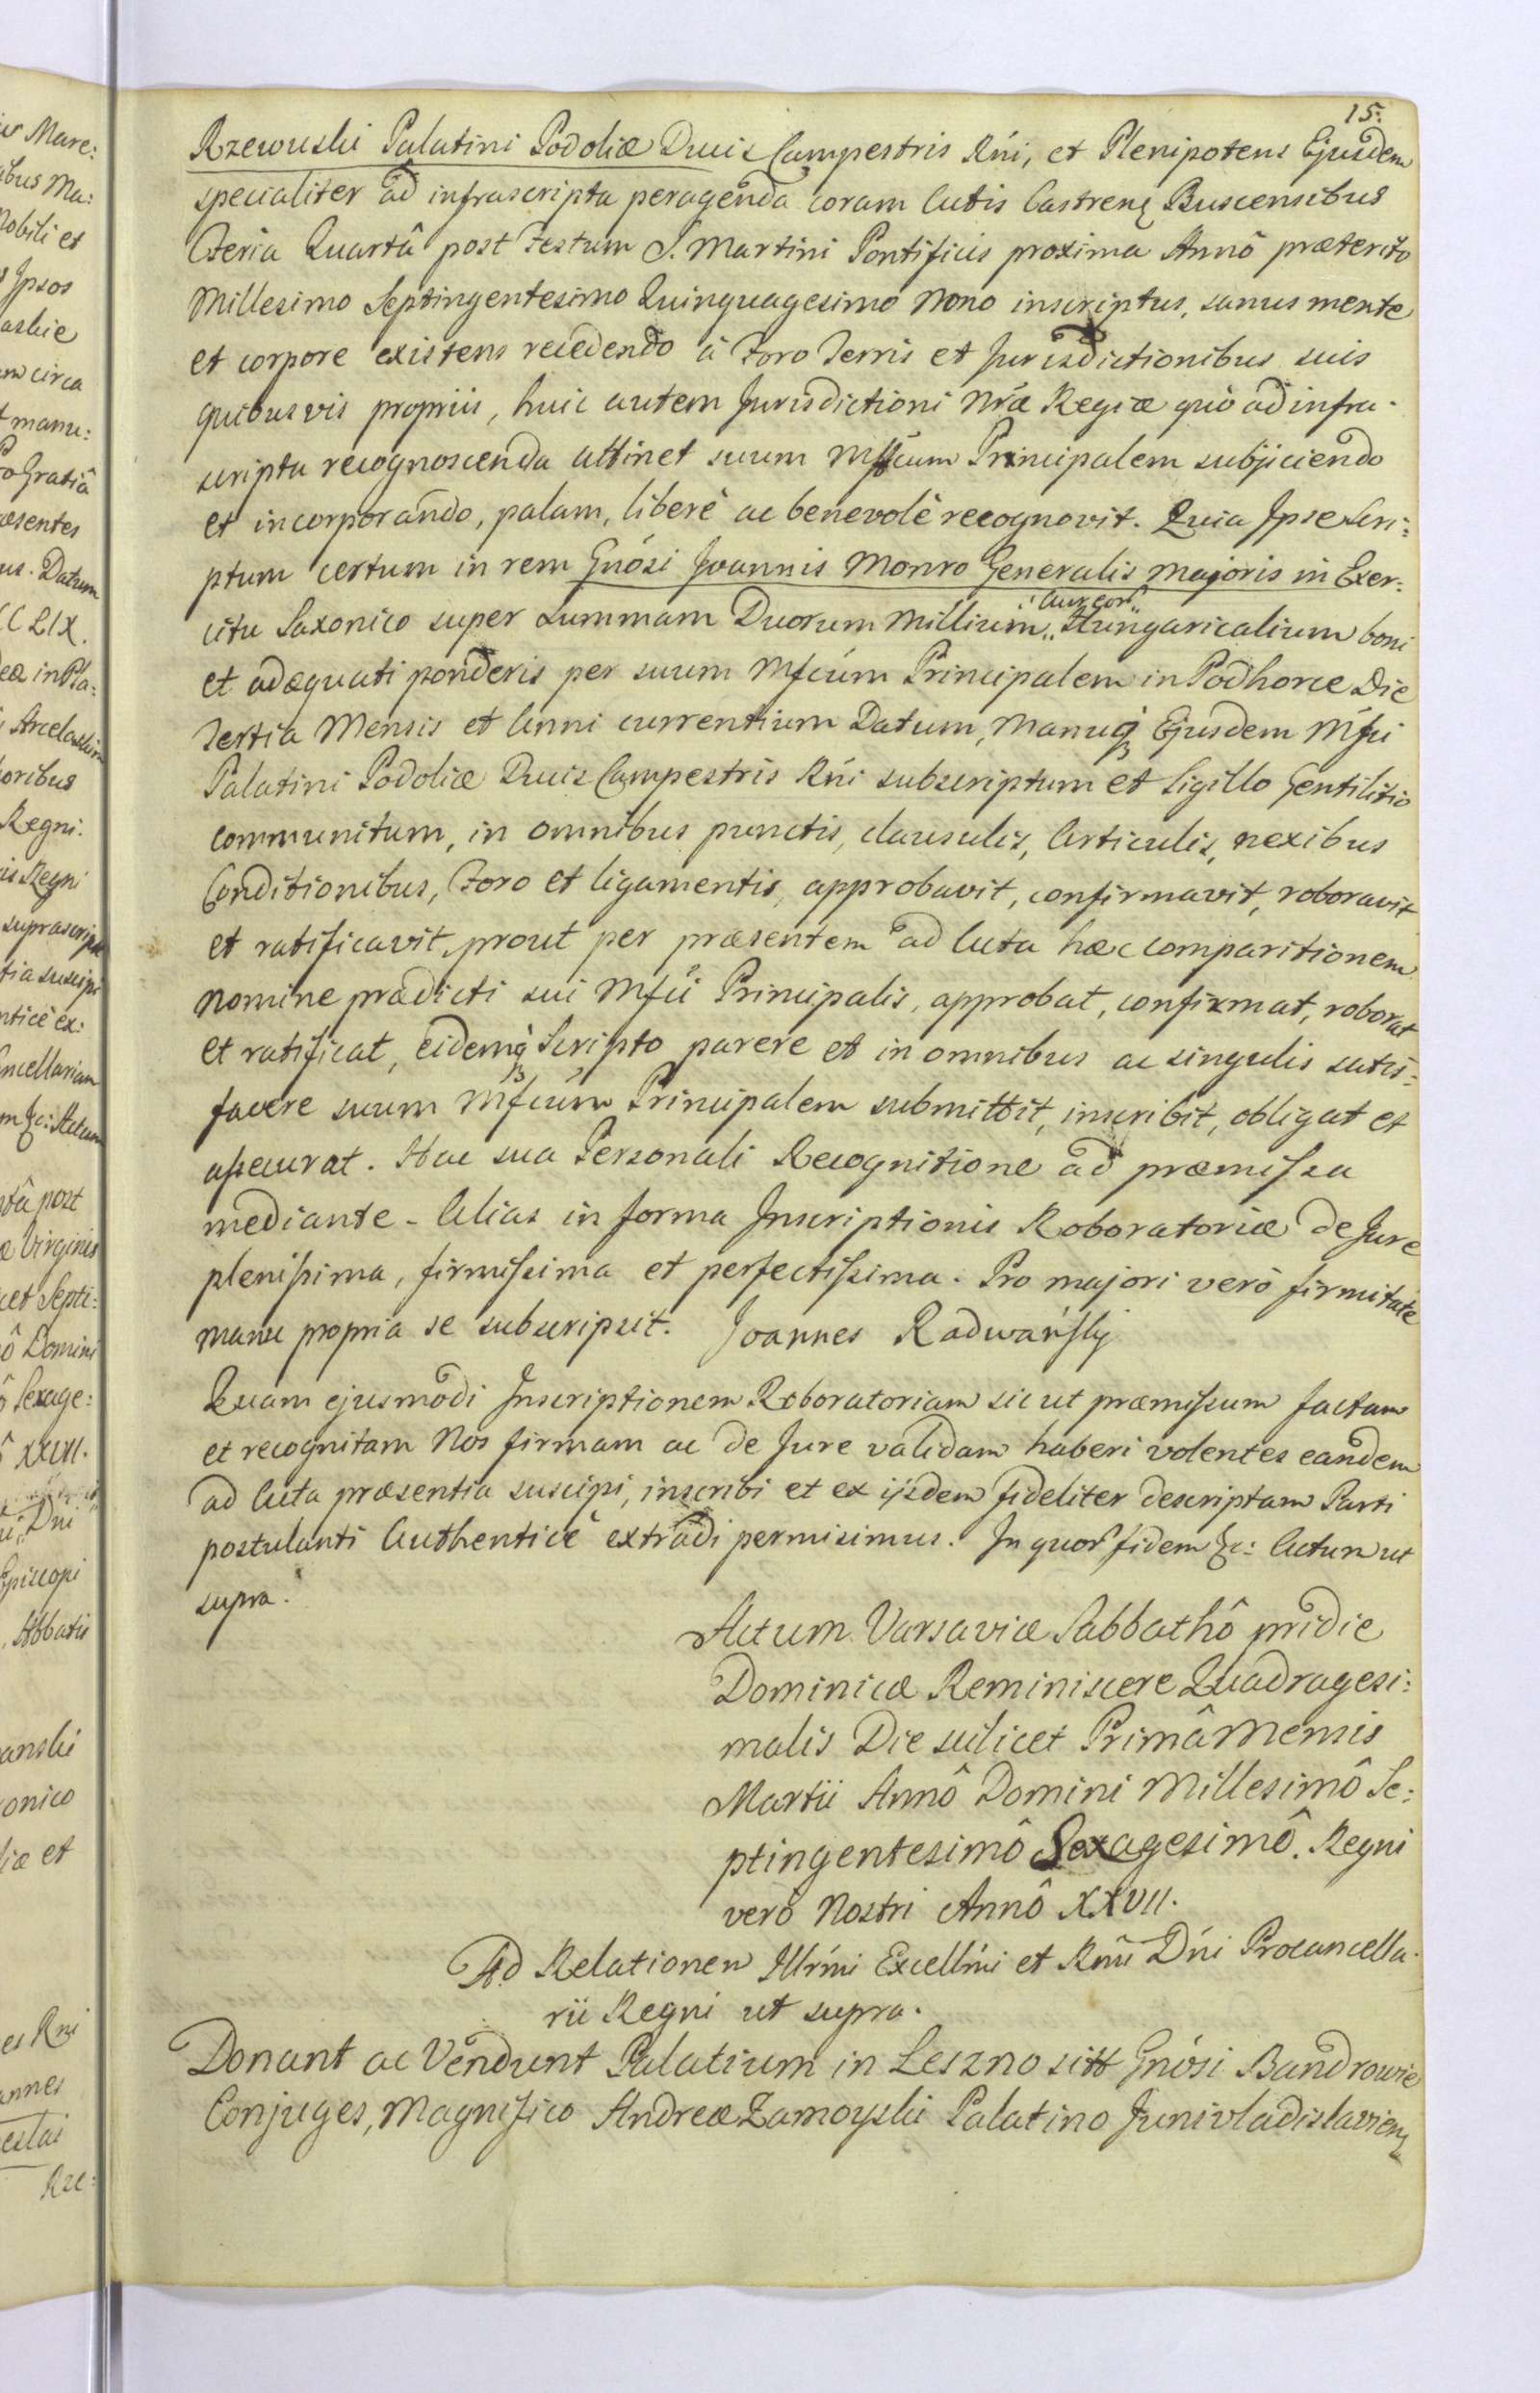 15.
Rzewuski Palatini Podoliæ Ducis Campestris Rńi, et Plenipotens Ejusdem
specialiter ad infrascripta peragenda coram Actis Castren Buscensibus
Feria Quartâ post Festum S. Martini Pontificis proxima Annô præterito
Millesimo Septingentesimo Quinquagesimo Nono inscriptus, sanus mente
et corpore existens recedendo à Foro Terris et Jurisdictionibus suis
quibusvis propriis, huic autem Jurisdictioni Nrǽ Regiæ quò ad infra-
scripta recognoscenda attinet suum Mfcum Principalem subjiciendo
et incorporando, palam, liberè ac benevolè recognovit. Quia Ipse Scri:
ptum certum in rem Gnósi Joannis Monro Generalis Majoris in Exer:
citu Saxonico super summam Duorum Millium Aureor Hungaricalium boni
et adæquati ponderis per suum Mfcúm Principalem in Podhorce Die
Tertia Mensis et Anni currentium Datum, Manuq Ejusdem Mfci
Palatini Podoliæ Ducis Campestris Rńi subscriptum et Sigillo Gentilitio
communitum, in omnibus punctis, clausulis, Articulis, nexibus
Conditionibus, Foro et ligamentis, approbavit, confirmavit, roboravit
et ratificavit, prout per præsentem ad Acta hæc comparitionem
nomine prædicti sui Mfci Principalis, approbat, confirmat, roborat
et ratificat, eidemq Scripto parere et in omnibus ac singulis satis:
facere suum Mfcúm Principalem submittit, inscribit, obligat et
assecurat. Hac sua Personali Recognitione ad præmissa
mediante - Alias in forma Inscriptionis Roboratoriæ de Jure
plenissima, firmissima et perfectissima. Pro majori verò firmitate
manu propria se subscripsit. Joannes Radwański
Quam ejusmodi Inscriptionem Roboratoriam sic ut præmissum factam
et recognitam Nos firmam ac de Jure validam haberi volentes eandem
ad Acta præsentia suscipi, inscribi et ex ijsdem fideliter descriptam Parti
postulanti Authenticè extradi permisimus. In quor fidem &c: Actum ut
supra.
Actum Varsaviæ Sabbathô pridie
Dominicæ Reminiscere Quadragesi:
malis Die scilicet Primâ Mensis
Martii Annô Domini Millesimô Se:
ptingentesimô Sexagesimô. Regni
verò Nostri Annô XXVII.
Ad Relationem Illrmi Excellmi et Rmi Dńi Procancella-
rii Regni ut supra.
Donant ac Vendunt Palatium in Leszno sitt Gnósi Bandrowie
Conjuges, Magnifico Andreæ Zamoyski Palatino Junivladislavien